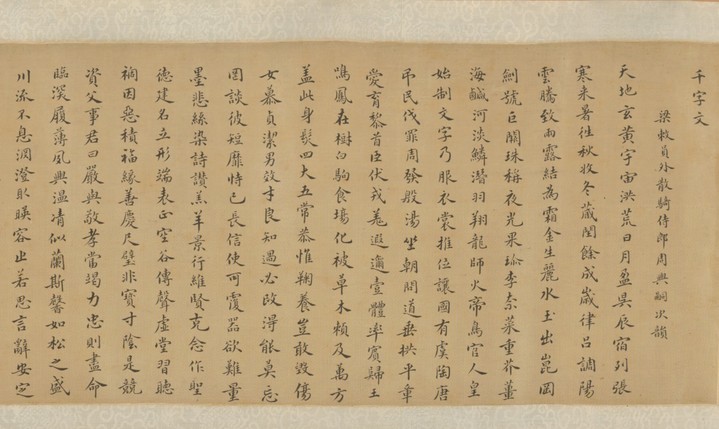 千字文
梁敕員外散騎侍郎周興嗣次韻
天地玄黃宇宙洪荒日月盈昃辰宿列張
寒來暑往秋收冬藏閏餘成歲律呂調陽
雲騰致雨露結為霜金生麗水玉出崑岡
劍號巨闕珠稱夜光果珍李柰菜重芥薑
海鹹河淡鱗潛羽翔龍師火帝鳥官人皇
始制文字乃服衣裳推位讓國有虞陶唐
吊民伐罪周發殷湯坐朝問道垂拱平章
愛育黎首臣伏戎羌遐邇壹體率賓歸王
鳴鳳在樹白駒食場化被草木賴及萬方
蓋此身髮四大五常恭惟鞠養豈敢毀傷
女慕貞潔男效才良知過必改得能莫忘
罔談彼短靡恃己長信使可覆器欲難量
墨悲絲染詩讚羔羊景行維賢克念作聖
德建名立形端表正空谷傳聲虛堂習聽
禍因惡積福緣善慶尺璧非寶寸陰是競
資父事君曰嚴與敬孝當竭力忠則盡命
臨深履薄夙興溫凊似蘭斯馨如松之盛
川流不息淵澄取暎容止若思言辭安定